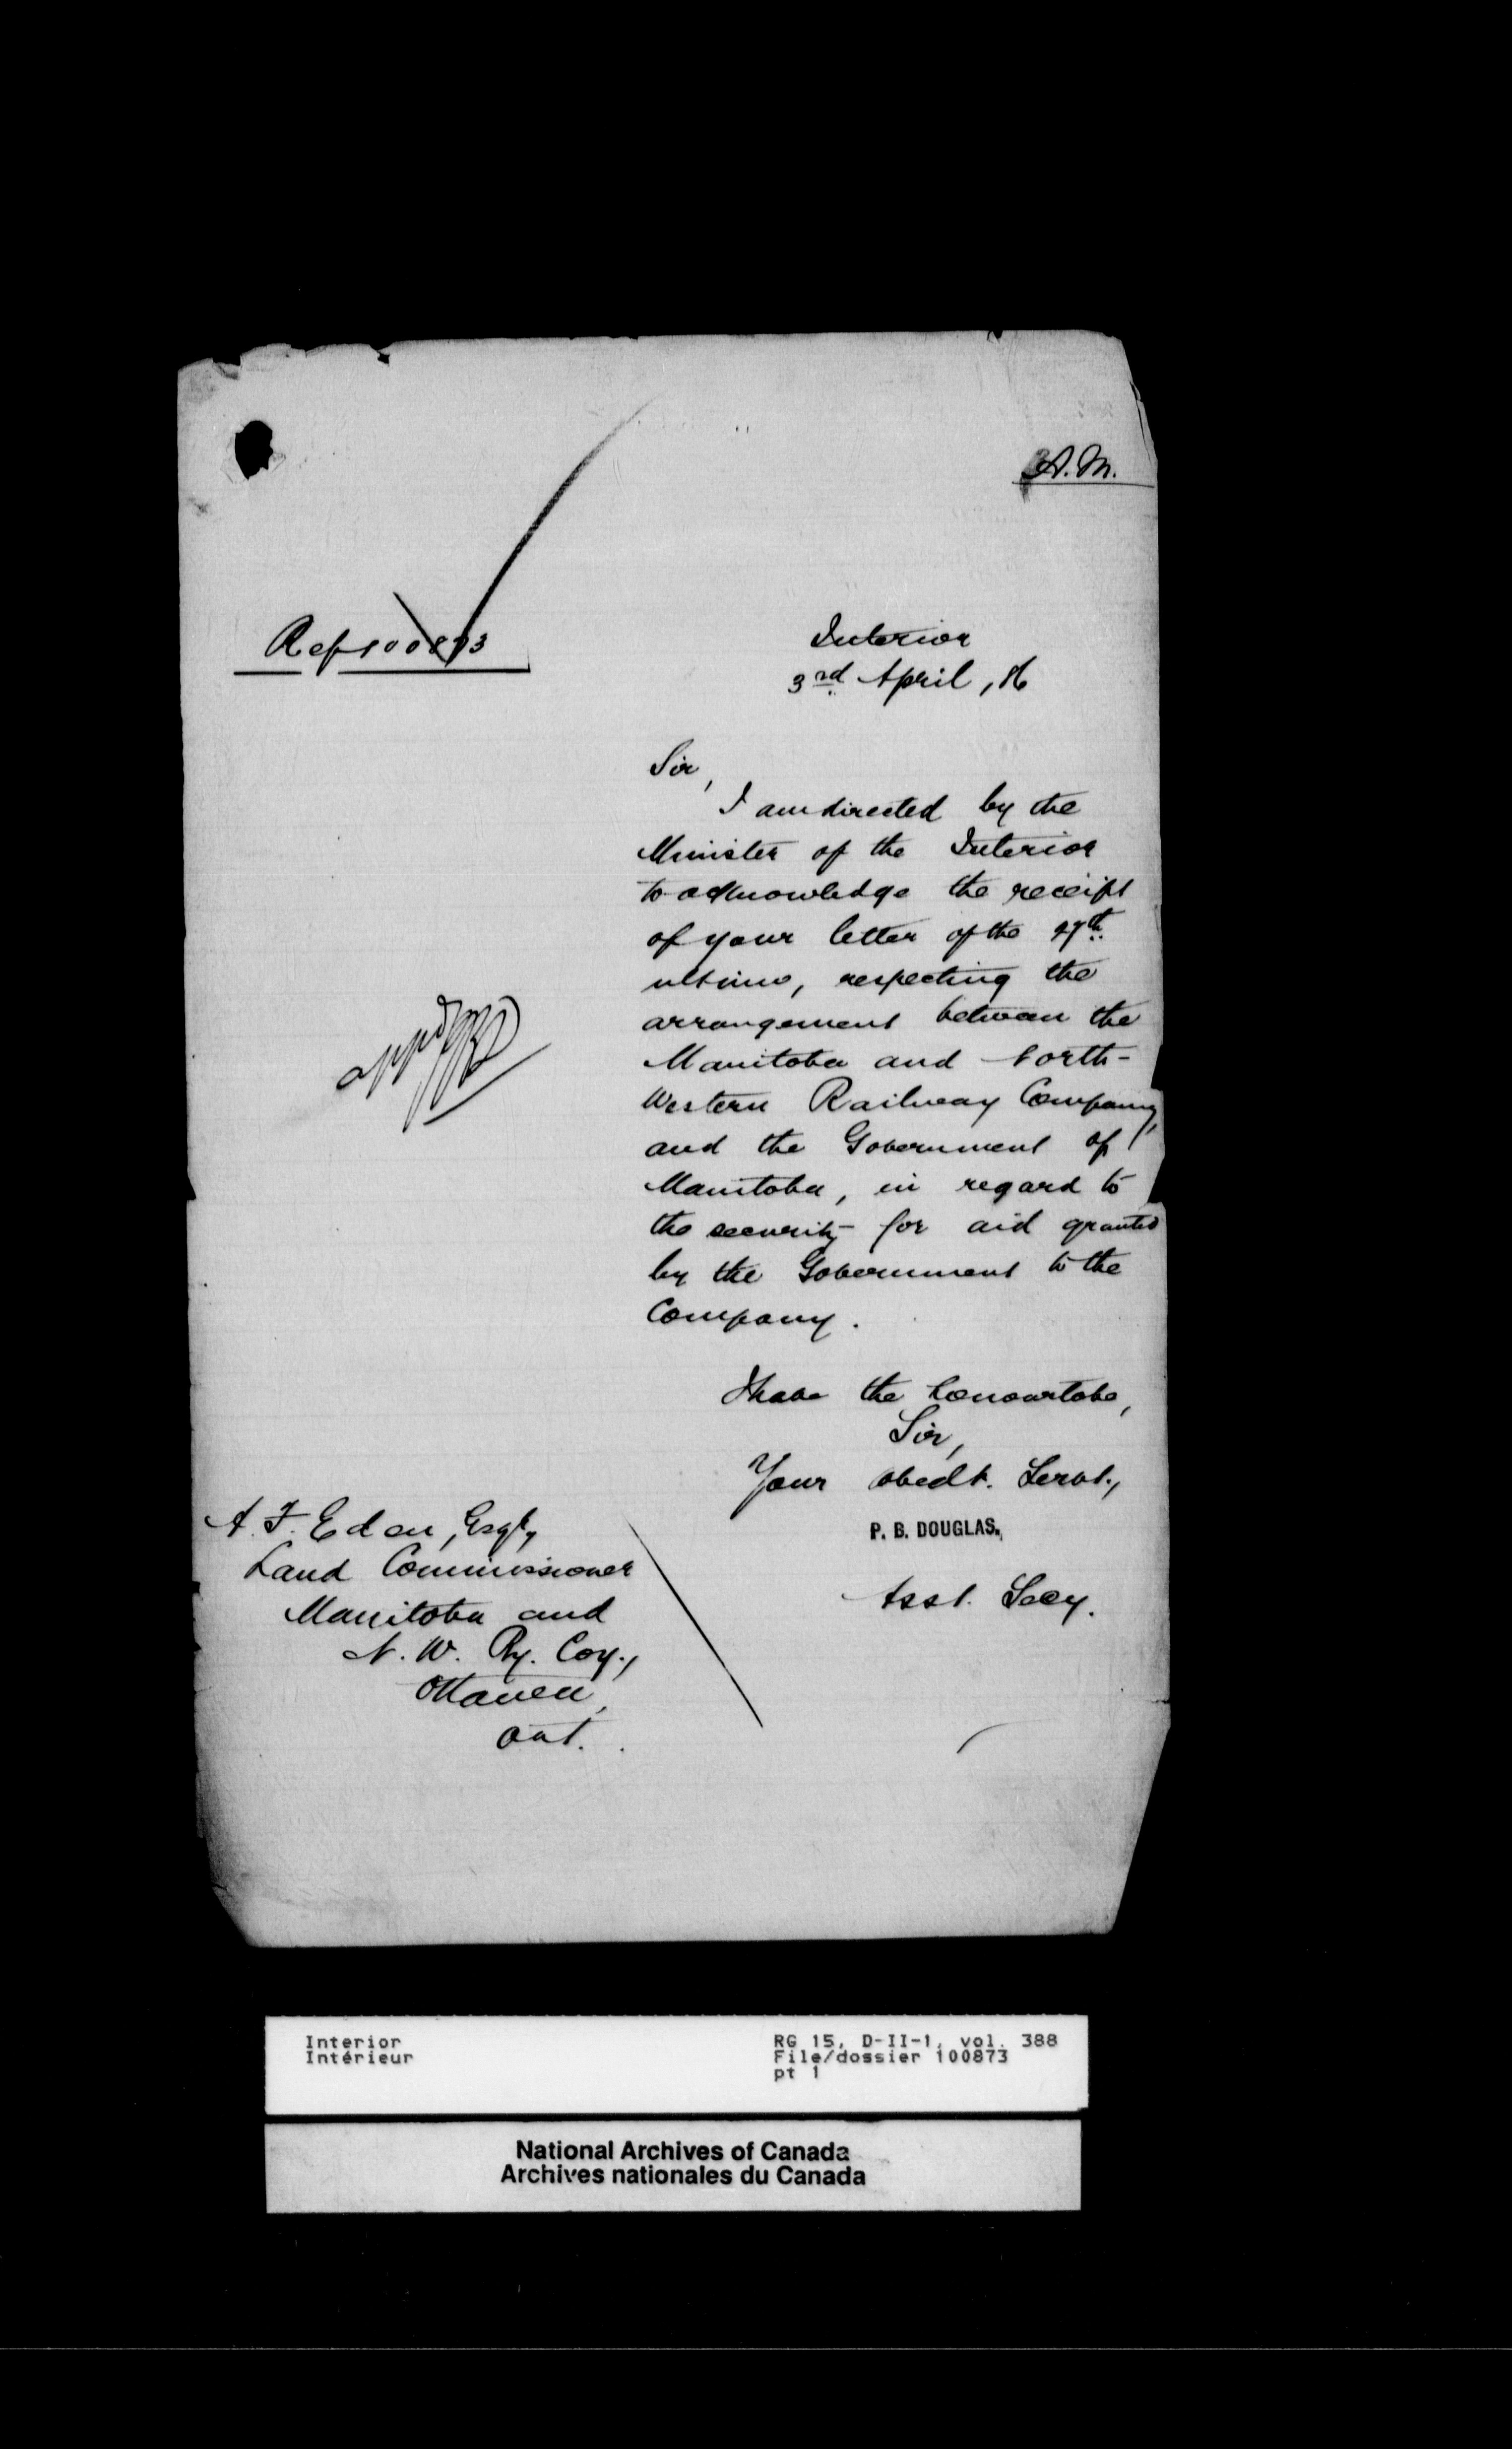 A.M.
Ref 100873
Interior
3rd April, 86
Sir,
I am directed by the
Minister of the Interior
to acknowledge the receipt
of your letter of the 27th
ultimo, respecting the
arrangement between the
Manitoba and North-
Western Railway Company,
and the Government of
Manitoba, in regard to
the security for aid granted
by the Government to the
Company.
I have the honour to be,
Sir,
Your obedt. Servt.,
P. B. DOUGLAS.,
Asst. Secy.
A. F. Eden, Esqr,
Land Commissioner
Manitoba and
N. W. Ry. Coy.,
Ottawa,
Ont.
Interior
Intérieur
RG 15, D-II-1, vol. 388
File/dossier 100873
pt 1
National Archives of Canada
Archives nationales du Canada